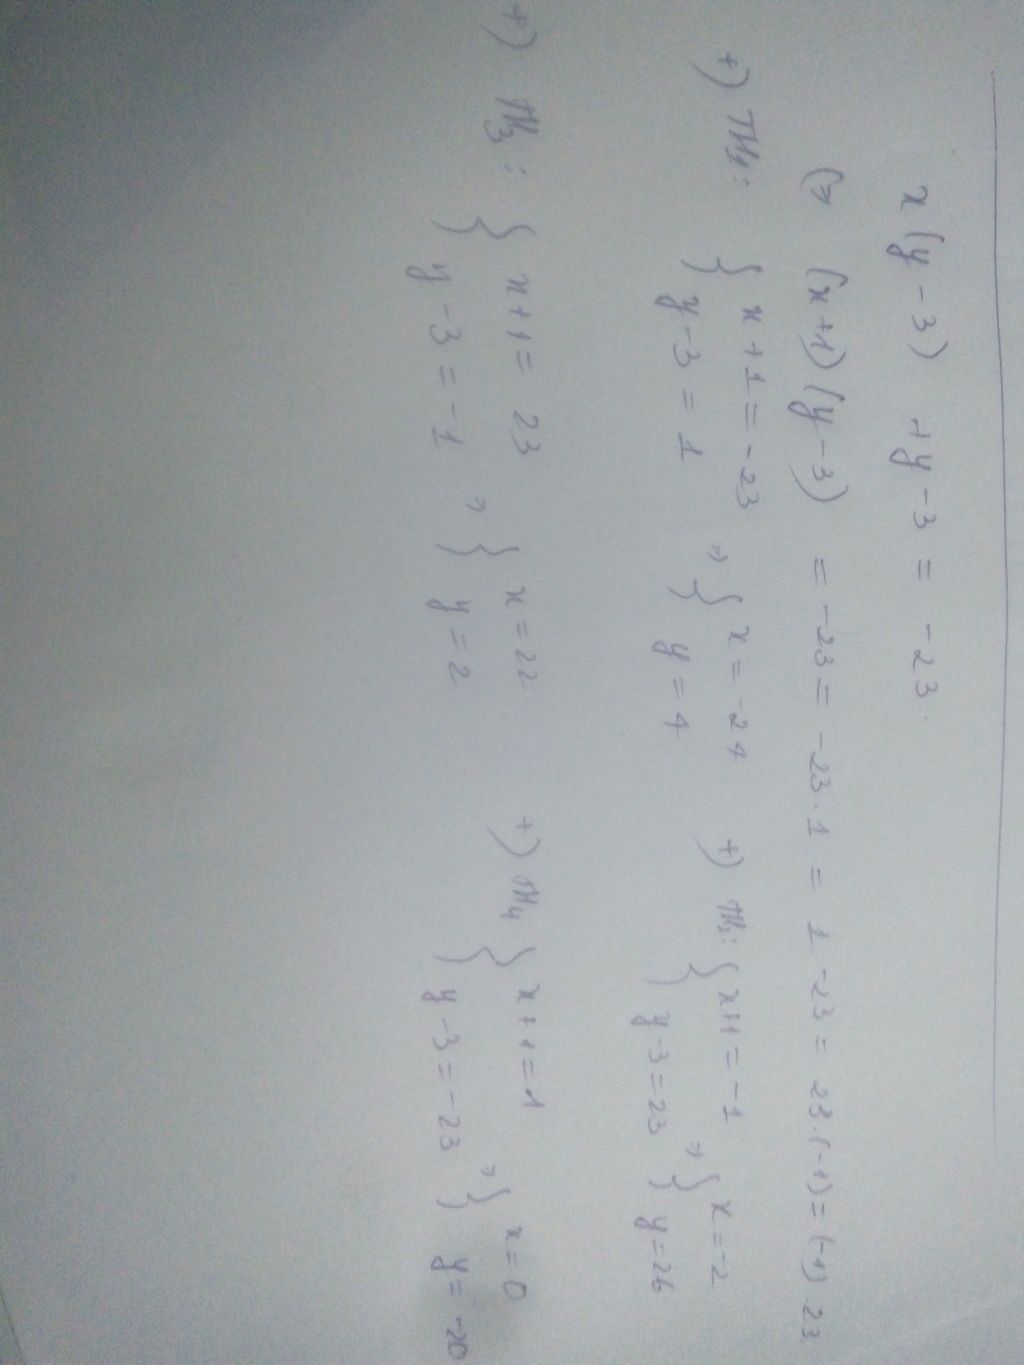 x(y-3) + y-3 = -23.
(> (x+1)(y-3) = -23 = -23.1 = 1 -23 = 23.(-1) = (-1).23
+) TH1: { x+1 = -23 y-3 = 1 => { x = -24 y = 4 +) TH2: { x+1 = -1 y-3 = 23 => { x = -2 y = 26
+) TH3: { x+1 = 23 y-3 = -1 => { x = 22 y = 2 +) TH4 { x+1 = 1 y-3 = -23 => { x = 0 y = -20